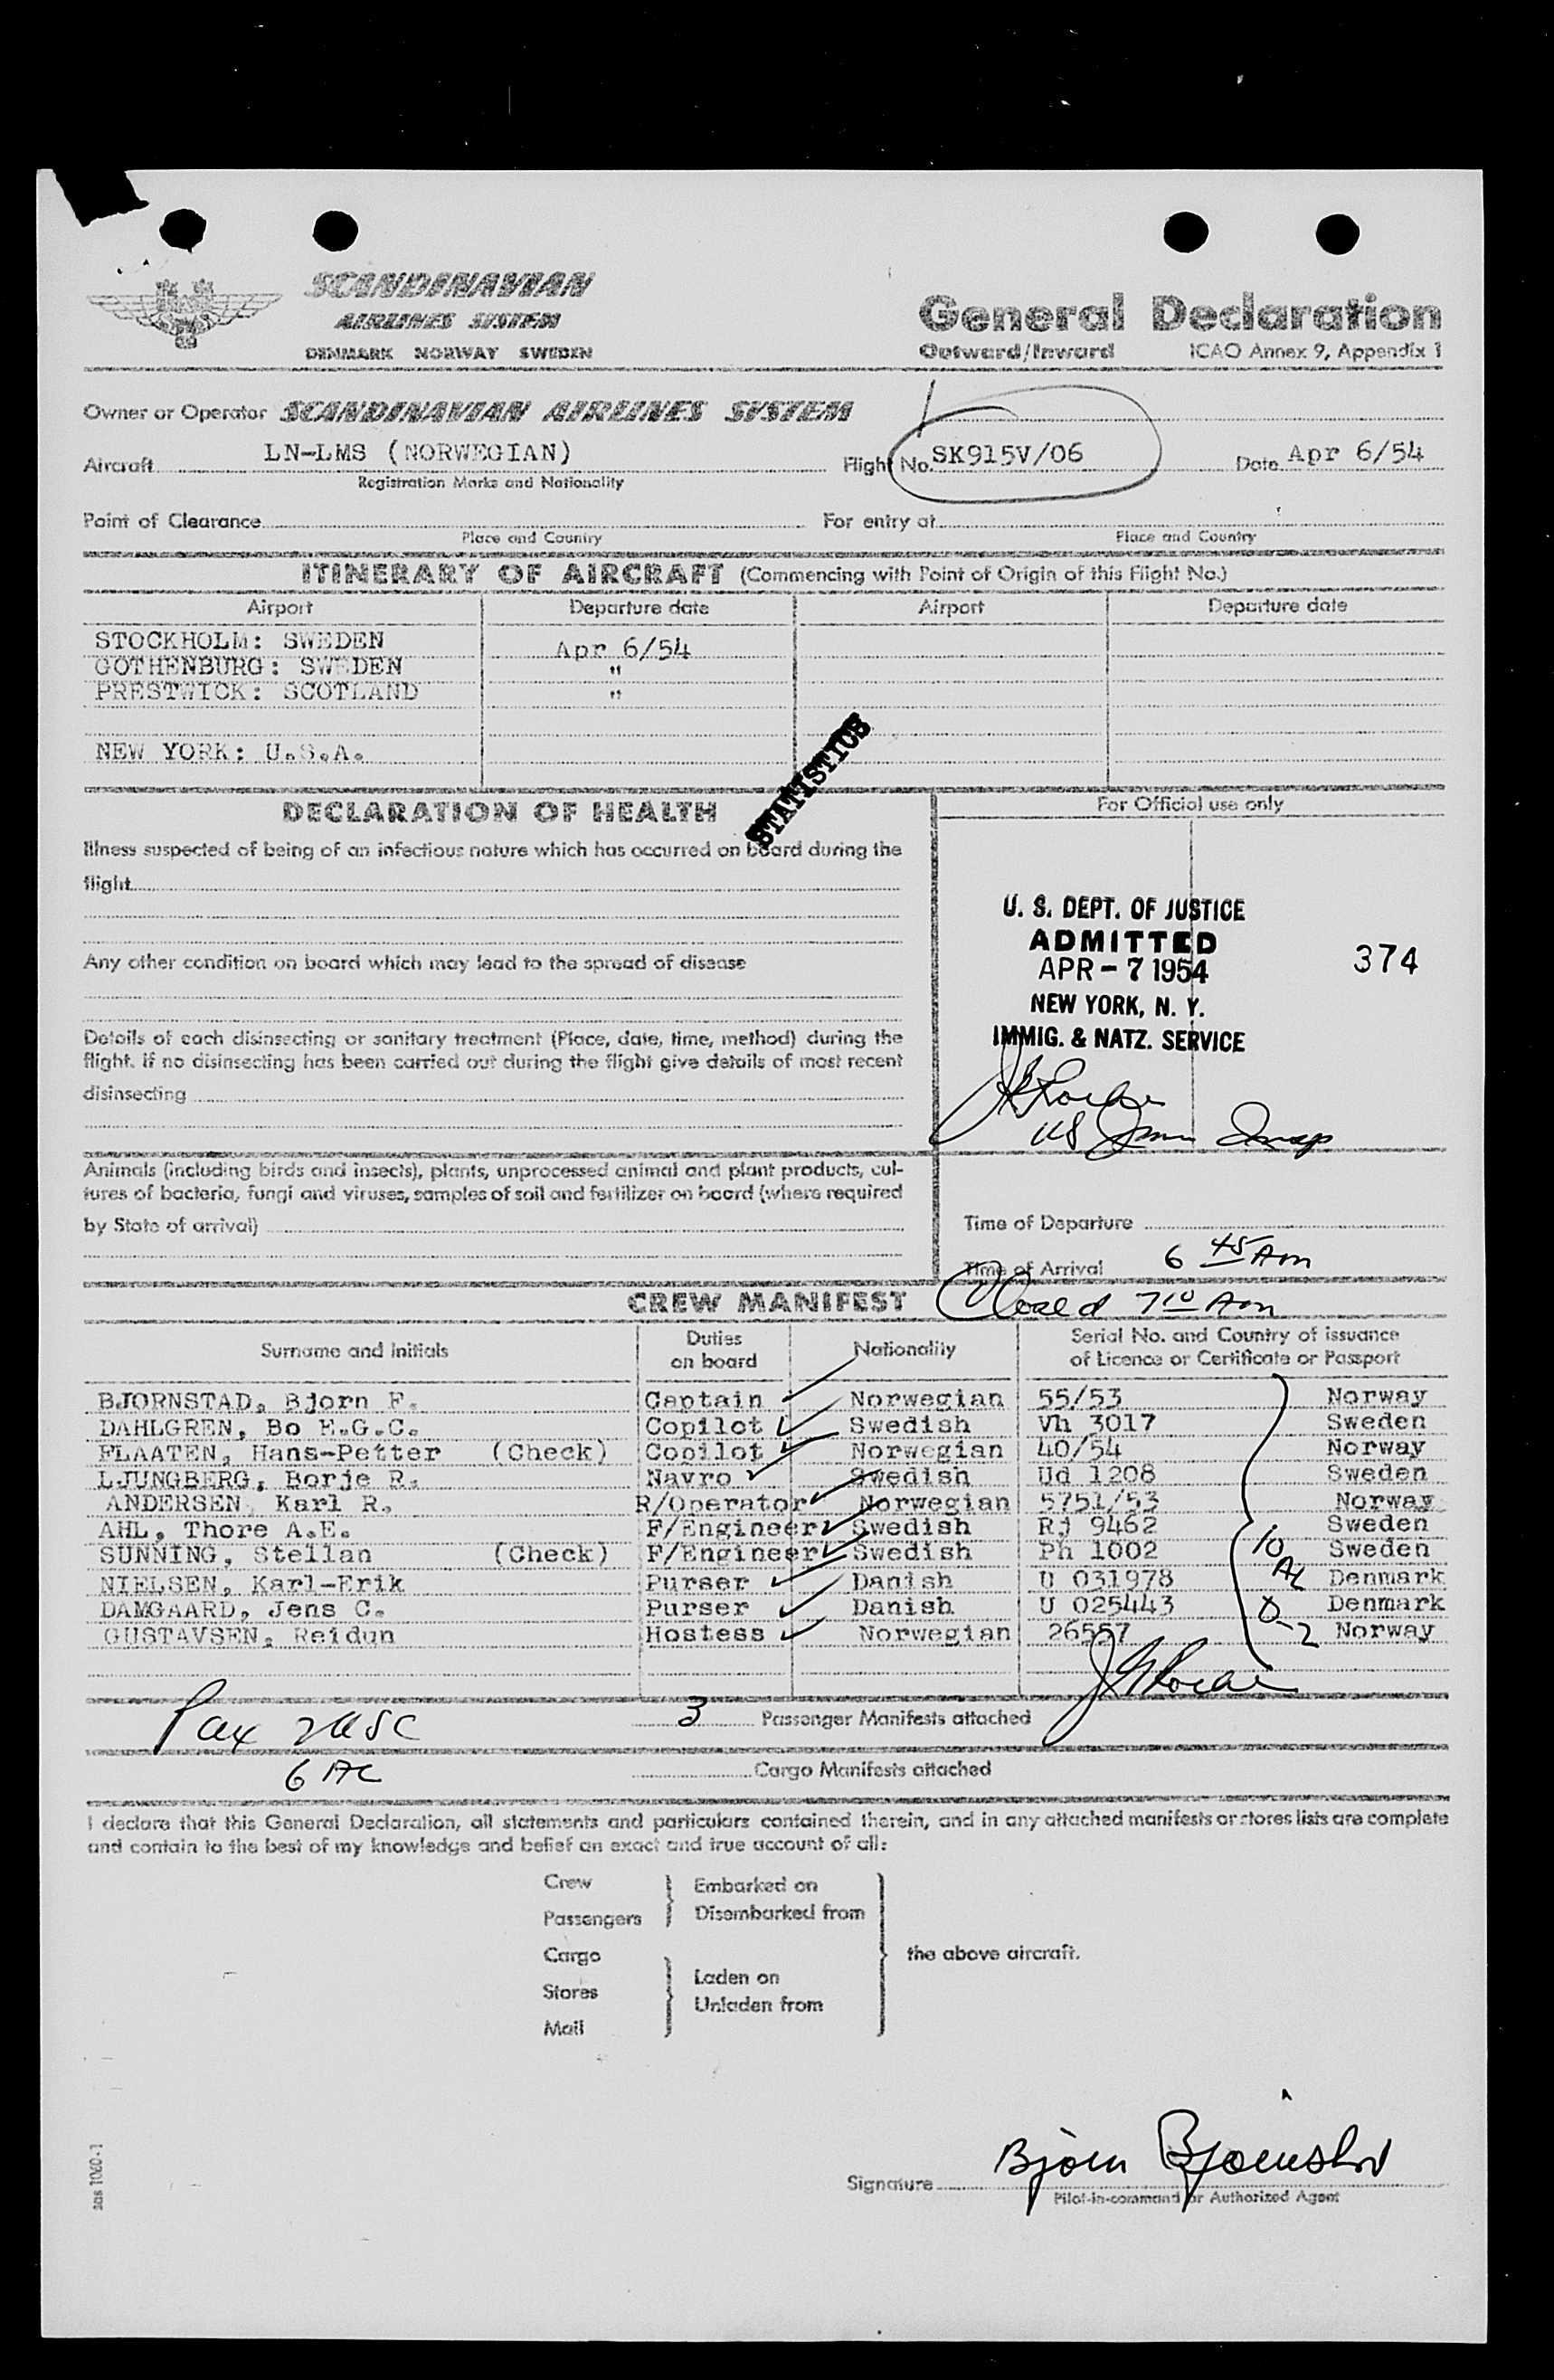 SCANDINAVIAN
AIRLINES SYSTEM
DENMARK NORWAY SWEDEN
General Declaration
Outward/Inward ICAO Annex 9, Appendix 1
Owner or Operator SCANDINAVIAN AIRLINES SYSTEM
Aircraft LN-LMS (NORWEGIAN) Flight No. SK915V/06 Date Apr 6/54
Registration Marks and Nationality
Point of Clearance For entry at
Place and Country Place and Country
ITINERARY OF AIRCRAFT (Commencing with Point of Origin of this Flight No.)
Airport Departure date Airport Departure date
STOCKHOLM: SWEDEN Apr 6/54
GOTHENBURG: SWEDEN "
PRESTWICK: SCOTLAND "
NEW YORK: U.S.A.
STATISTICS
DECLARATION OF HEALTH
Illness suspected of being of an infectious nature which has occurred on board during the
flight
Any other condition on board which may lead to the spread of disease
Details of each disinsecting or sanitary treatment (Place, date, time, method) during the
flight. If no disinsecting has been carried out during the flight give details of most recent
disinsecting
Animals (including birds and insects), plants, unprocessed animal and plant products, cul-
tures of bacteria, fungi and viruses, samples of soil and fertilizer on board (where required
by State of arrival)
For Official use only
U. S. DEPT. OF JUSTICE
ADMITTED
APR - 7 1954
NEW YORK, N. Y.
IMMIG. & NATZ. SERVICE
374
US Imm Insp
Time of Departure
Time of Arrival 6 45 Am
Closed 7 10 Am
CREW MANIFEST
Surname and Initials Duties on board Nationality Serial No. and Country of issuance of Licence or Certificate or Passport
BJORNSTAD, Bjorn F. Captain Norwegian 55/53 Norway
DAHLGREN, Bo E.G.C. Copilot Swedish Vh 3017 Sweden
FLAATEN, Hans-Petter (Check) Copilot Norwegian 40/54 Norway
LJUNGBERG, Borje R. Navro Swedish Ud 1208 Sweden
ANDERSEN, Karl R. R/Operator Norwegian 5751/53 Norway
AHL, Thore A.E. F/Engineer Swedish Rj 9462 Sweden
SUNNING, Stellan (Check) F/Engineer Swedish Ph 1002 Sweden
NIELSEN, Karl-Erik Purser Danish U 031978 Denmark
DAMGAARD, Jens C. Purser Danish U 025443 Denmark
GUSTAVSEN, Reidun Hostess Norwegian 26557 Norway
10
D-2
Pax 2 USC
6 AC
3 Passenger Manifests attached
Cargo Manifests attached
I declare that this General Declaration, all statements and particulars contained therein, and in any attached manifests or stores lists are complete
and contain to the best of my knowledge and belief an exact and true account of all:
Crew Embarked on
Passengers Disembarked from
Cargo the above aircraft.
Stores Laden on
Unladen from
Mail
sas 1060-1
Signature Bjorn Bjornstad
Pilot-in-command or Authorized Agent